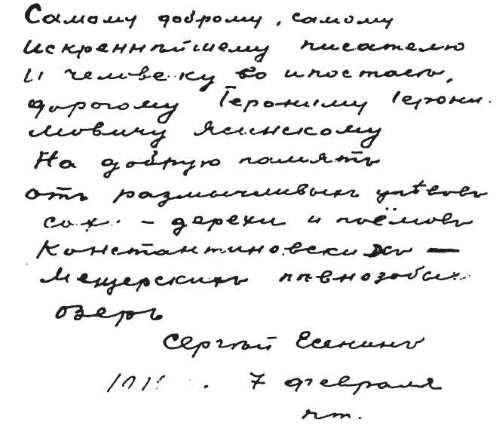 Самому доброму, самому
искреннѣйшему писателю
и человеку во ипостась,
дорогому Героним у Герони-
мовичу Ясинскому
На добрую память
отъ размычливыхъ упѣвовъ
сох – дерехи и поёмовъ
Константиновскихъ –
Мещерскихъ певнозобых
озеръ
Сергѣй Есенинъ
7 февраля
пт.